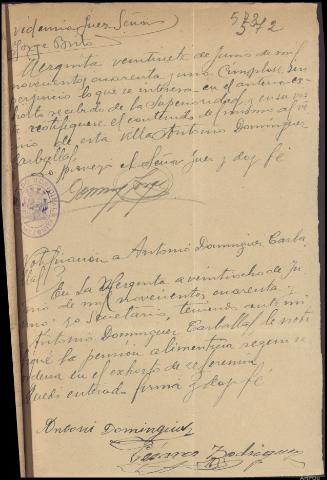 videncia Juez Señor
Jorge Brito
572
572
Mergenta veintisiete de Junio de mil
novecientos cuarenta y uno. Cumplase sin
perjuicio lo que se interesa en el anterior
recibido de la Superioridad y en su
notifiquese el contenido de mismo al ve
cino de esta villa Antonio Dominguez
Carballal.
Lo proveyó el Señor Juez y doy fé
Notificacion a Antonio Dominguez Carba
llal
En La Mergenta a veintiocho de Ju
nio de mil novecientos cuarenta y
uno yo Secretario, teniendo ante mi
Antonio Dominguez Carballal le noti
qué la pensión alimenticia segun se
ordena en el exhorto de referencia
quedó enterado firma y doy fé
Antonio Dominguez
Cesareo Rodriguez